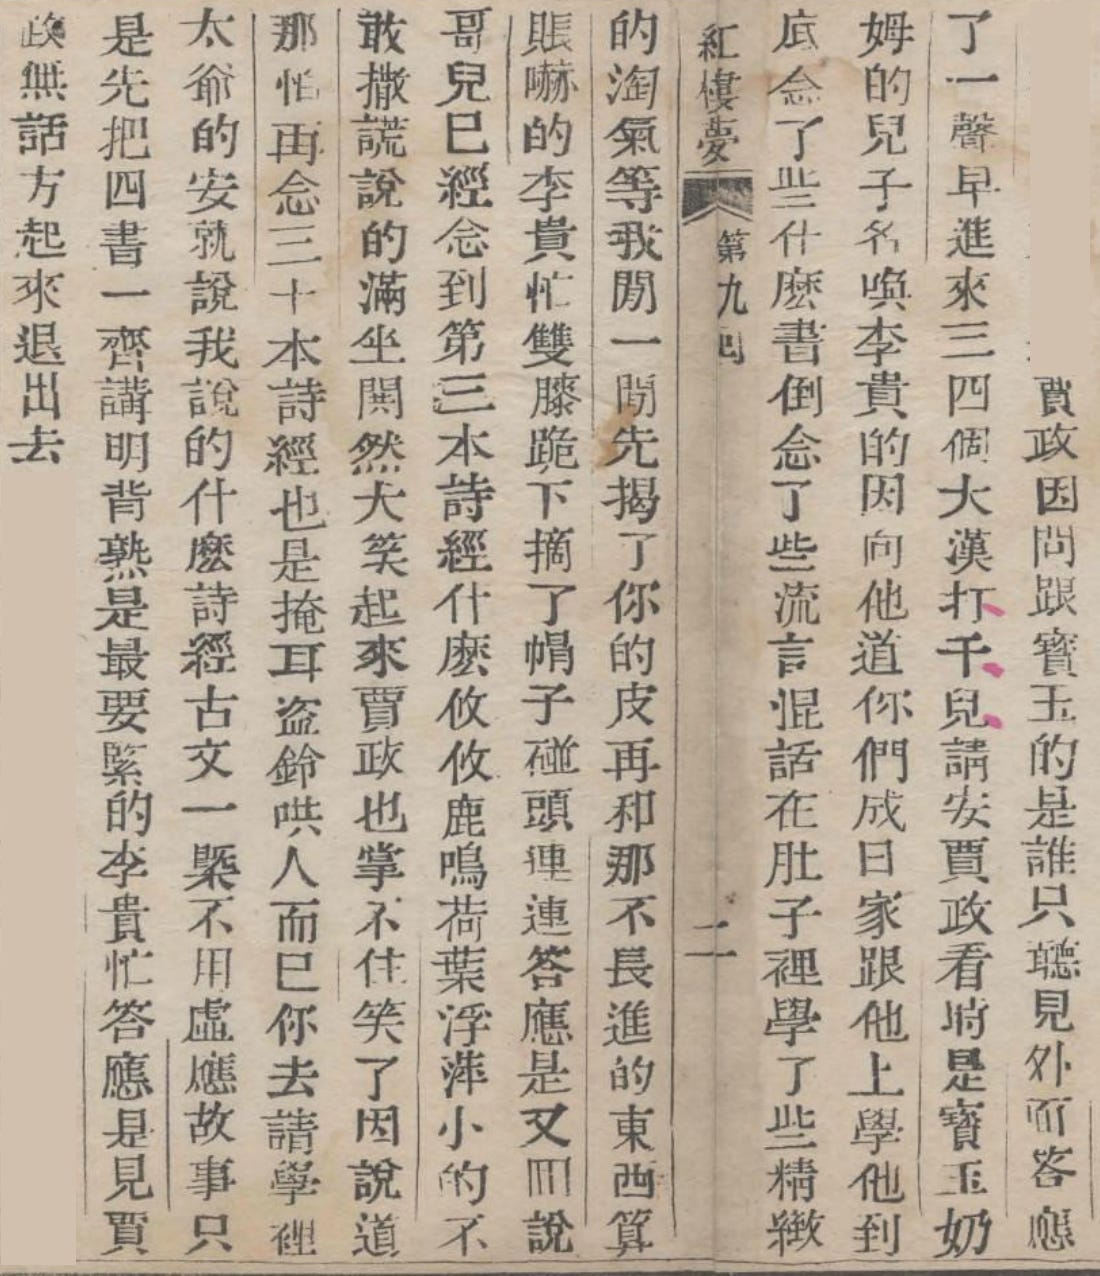 賈政因問跟寶玉的是誰只聽見外面答應
了一聲早進來三四個大漢打千兒請安賈政看時是寶玉奶
姆的兒子名喚李貴的因向他道你們成日家跟他上學他到
底念了些什麽書倒念了些流言混話在肚子裡學了些精緻
紅樓夢 第九回 二
的淘氣等我閒一閒先揭了你的皮再和那不長進的東西算
賬嚇的李貴忙雙膝跪下摘了帽子碰頭連連答應是又回說
哥兒已經念到第三本詩經什麽攸攸鹿鳴荷葉浮萍小的不
敢撒謊說的滿坐閧然大笑起來賈政也掌不住笑了因說道
那怕再念三十本詩經也是掩耳盗鈴哄人而已你去請學裡
太爺的安就說我說的什麽詩經古文一槩不用虛應故事只
是先把四書一齊講明背熟是最要緊的李貴忙答應是見賈
政無話方起來退出去